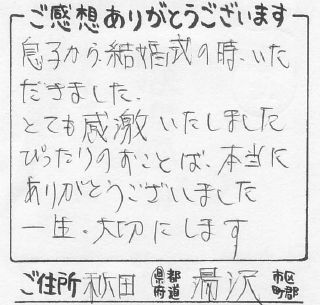 ご感想ありがとうございます
息子から、結婚式の時、いた
だきました、
とても感激いたしました
ぴったりのおことば、本当に
ありがとうございました
一生、大切にします
ご住所 秋田 都道府県 湯沢 市区町郡